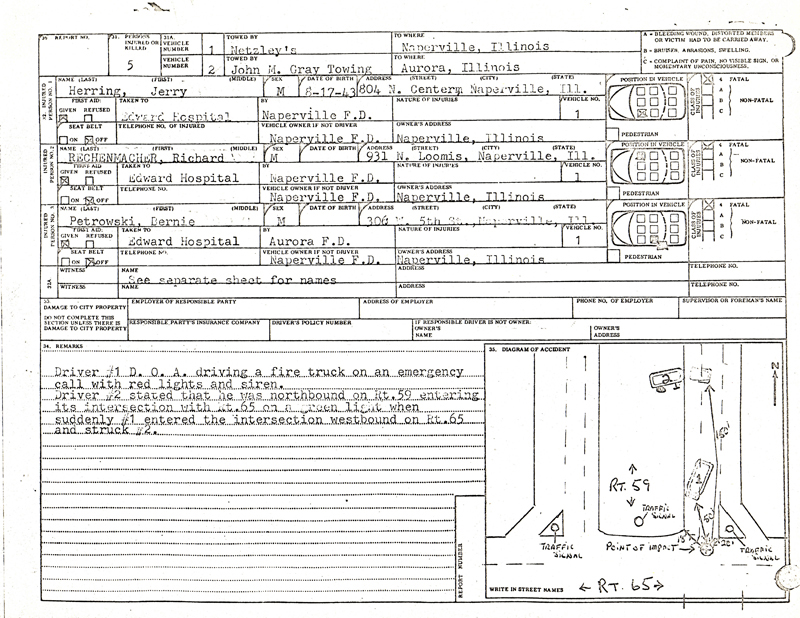 REPORT NO.
PERSONS INJURED OR KILLED 5
31A. VEHICLE NUMBER 1 TOWED BY Netzley's TO WHERE Naperville, Illinois
VEHICLE NUMBER 2 TOWED BY John M. Gray Towing TO WHERE Aurora, Illinois
A = BLEEDING WOUND, DISTORTED MEMBERS OR VICTIM HAD TO BE CARRIED AWAY.
B = BRUISES, ABRASIONS, SWELLING.
C = COMPLAINT OF PAIN, NO VISIBLE SIGN, OR MOMENTARY UNCONSCIOUSNESS.
INJURED PERSON NO. 1
NAME (LAST) (FIRST) (MIDDLE) SEX DATE OF BIRTH ADDRESS (STREET) (CITY) (STATE) POSITION IN VEHICLE
Herring, Jerry M 8-17-43 804 N. Centerm Naperville, Ill.
FIRST AID: GIVEN REFUSED TAKEN TO BY NATURE OF INJURIES VEHICLE NO.
Edward Hospital Naperville F.D. 1
SEAT BELT ON OFF TELEPHONE NO. OF INJURED VEHICLE OWNER IF NOT DRIVER OWNER'S ADDRESS
Naperville F.D. Naperville, Illinois
PEDESTRIAN
CLASS OF INJURIES 4 FATAL A B C NON-FATAL
INJURED PERSON NO. 2
NAME (LAST) (FIRST) (MIDDLE) SEX DATE OF BIRTH ADDRESS (STREET) (CITY) (STATE) POSITION IN VEHICLE
RECHENMACHER, Richard M 931 N. Loomis, Naperville, Ill.
FIRST AID GIVEN REFUSED TAKEN TO BY NATURE OF INJURIES VEHICLE NO.
Edward Hospital Naperville F.D. 1
SEAT BELT ON OFF TELEPHONE NO. VEHICLE OWNER IF NOT DRIVER OWNER'S ADDRESS
Naperville F.D. Naperville, Illinois
PEDESTRIAN
CLASS OF INJURIES 4 FATAL A B C NON-FATAL
INJURED PERSON NO. 3
NAME (LAST) (FIRST) (MIDDLE) SEX DATE OF BIRTH ADDRESS (STREET) (CITY) (STATE) POSITION IN VEHICLE
Petrowski, Bernie M 306 5th Naperville, Ill
FIRST AID: GIVEN REFUSED TAKEN TO BY NATURE OF INJURIES VEHICLE NO.
Edward Hospital Aurora F.D. 1
SEAT BELT ON OFF TELEPHONE NO. VEHICLE OWNER IF NOT DRIVER OWNER'S ADDRESS
Naperville F.D. Naperville, Illinois
PEDESTRIAN
CLASS OF INJURIES 4 FATAL A B C NON-FATAL
32A
WITNESS NAME ADDRESS TELEPHONE NO.
See separate sheet for names
WITNESS NAME ADDRESS TELEPHONE NO.
33. DAMAGE TO CITY PROPERTY
DO NOT COMPLETE THIS SECTION UNLESS THERE IS DAMAGE TO CITY PROPERTY
EMPLOYER OF RESPONSIBLE PARTY ADDRESS OF EMPLOYER PHONE NO. OF EMPLOYER SUPERVISOR OR FOREMAN'S NAME
RESPONSIBLE PARTY'S INSURANCE COMPANY DRIVER'S POLICY NUMBER IF RESPONSIBLE DRIVER IS NOT OWNER: OWNER'S NAME OWNER'S ADDRESS
34. REMARKS
Driver #1 D. O. A. driving a fire truck on an emergency
call with red lights and siren.
Driver #2 stated that he was northbound on Rt.59 entering
its intersection with Rt.65 on a green light when
suddenly #1 entered the intersection westbound on Rt.65
and struck #2.
REPORT NUMBER
35. DIAGRAM OF ACCIDENT
N
2
1
RT. 59
TRAFFIC SIGNAL
TRAFFIC SIGNAL
POINT OF IMPACT
TRAFFIC SIGNAL
WRITE IN STREET NAMES
← RT. 65 →